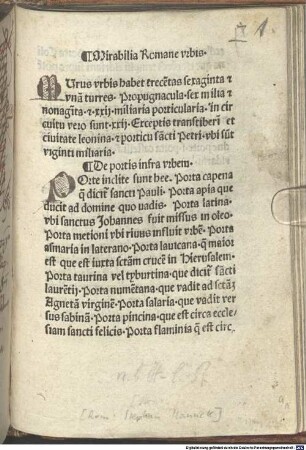 1
¶Mirabilia Romane vrbis.
MUrus vrbis habet trecētas sexaginta ⁊
vnā turres. Propugnacula. sex milia ⁊
nonagīta. ⁊ .xxij. miliaria porticularia. In cir
cuitu vero sunt .xxij. Exceptis transtiberī et
ciuitate leonina. ⁊ porticu sācti Petri. vbi sūt
viginti miliaria.
¶De portis infra vrbem.
POrte inclite sunt hee. Porta capena
q̄ dicit̄ sancti Pauli. Porta apia que
ducit ad domine quo uadis. Porta latina.
vbi sanctus Johannes fuit missus in oleo.
Porta metioni vbi riuus influit vrbē. Porta
asmaria in laterano. Porta lauicana. q̄ maior
est que est iuxta sctām crucē in Hierusalem.
Porta taurina vel tyburtina. que dicit̄ sācti
laurētij. Porta numētana. que vadit ad sctāȝ
Agnetā virginē. Porta salaria. que vadit ver
sus sabinā. Porta pincina. que est circa eccle
siam sancti felicis. Porta flaminia q̄ est circ
[Rom: Stephan Plannck]